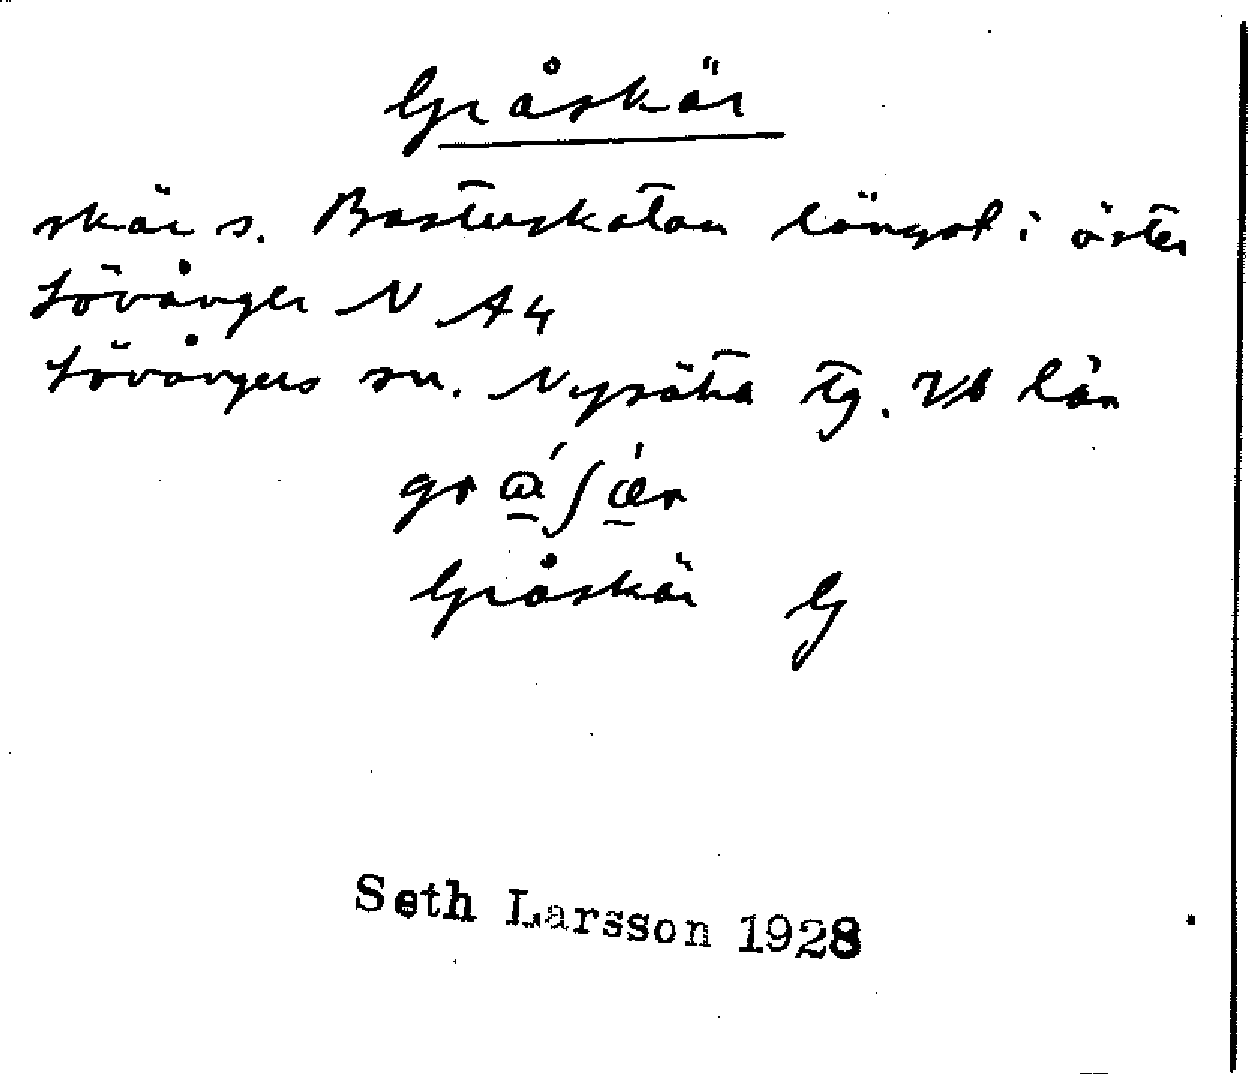 Gråskär
skär s. Bastuskatan längst i öster
Lövånger N A4
Lövångers sn. Nysätra tg. Vb län
Gråskär G
Seth Larsson 1928